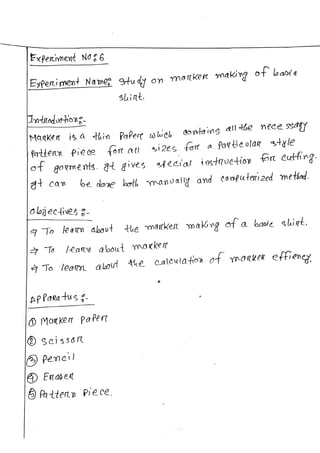 Experiment NO:6
Experiment Name: Study on marker making of basic
shirt.
Introduction:-
Marker is a thin paper which contains all the necessary
pattern piece for all sizes for a particular style
of garments. It gives special instruction for cutting.
It can be done both manually and computerized method.
objectives:-
⇒ To learn about the marker making of a basic shirt.
⇒ To learn about marker
⇒ To learn about the calculation of marker effieney.
Apparatus:-
① Marker paper
② Scissor
③ Pencil
④ Eraser
⑤ Pattern Piece.